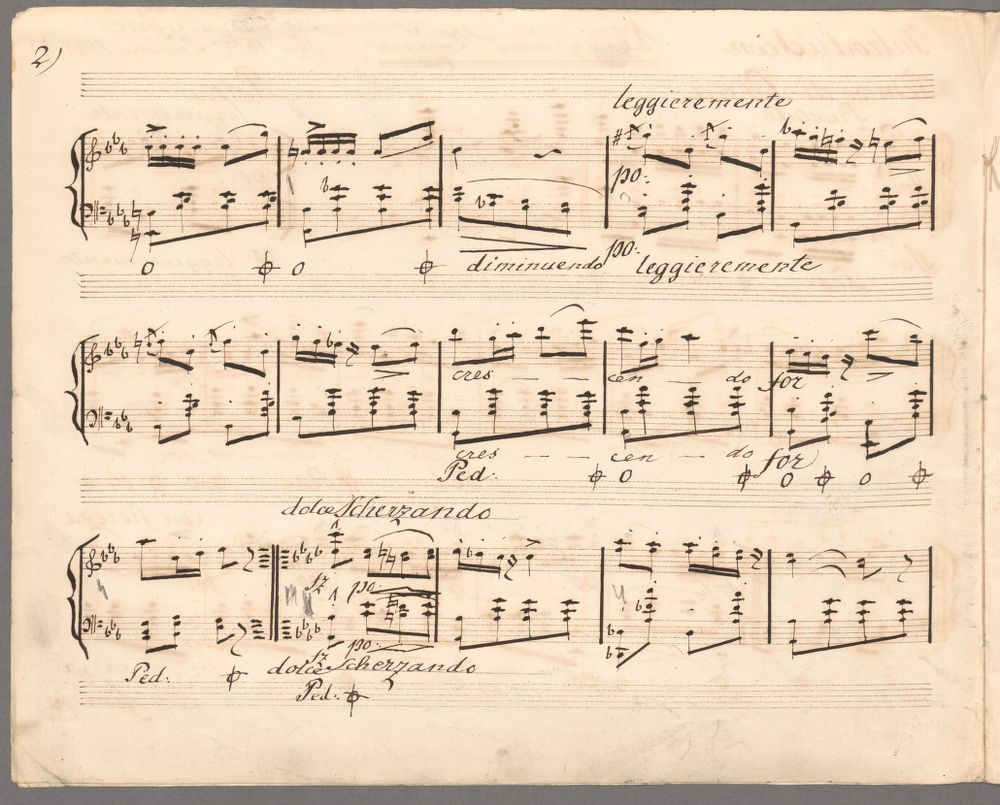 2)
leggieremente
po:
diminuendo po: leggieremente
cres — — cen — do for
cres — — cen — do for
Ped:
dolce Scherzando
fz po:
fz po:
Ped: dolce Scherzando
Ped: